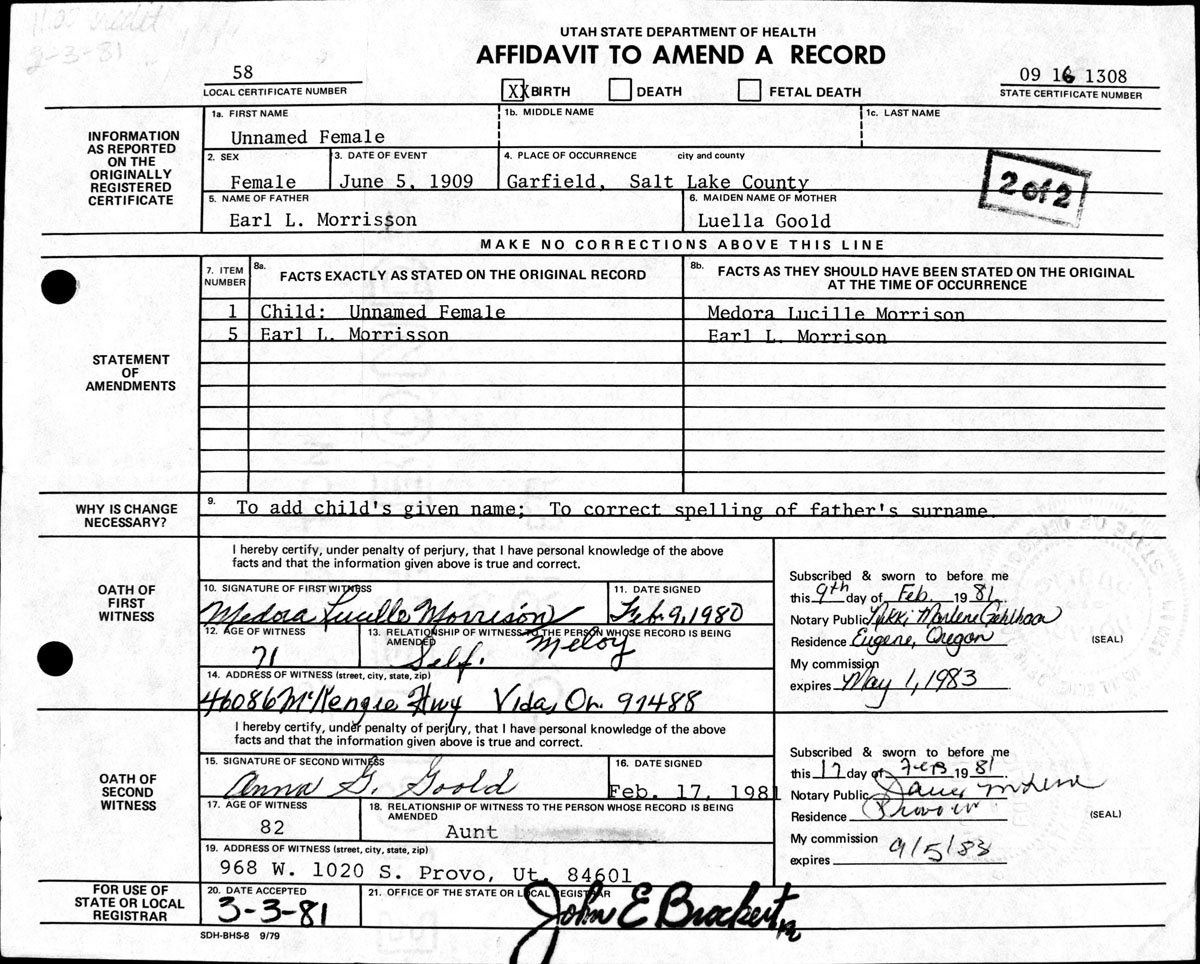 2-3-81
UTAH STATE DEPARTMENT OF HEALTH
AFFIDAVIT TO AMEND A RECORD
58
LOCAL CERTIFICATE NUMBER
XX BIRTH DEATH FETAL DEATH
09 16 1308
STATE CERTIFICATE NUMBER
INFORMATION
AS REPORTED
ON THE
ORIGINALLY
REGISTERED
CERTIFICATE
1a. FIRST NAME 1b. MIDDLE NAME 1c. LAST NAME
Unnamed Female
2. SEX 3. DATE OF EVENT 4. PLACE OF OCCURRENCE city and county
Female June 5, 1909 Garfield, Salt Lake County
2 of 2
5. NAME OF FATHER 6. MAIDEN NAME OF MOTHER
Earl L. Morrisson Luella Goold
MAKE NO CORRECTIONS ABOVE THIS LINE
STATEMENT
OF
AMENDMENTS
7. ITEM
NUMBER
8a. FACTS EXACTLY AS STATED ON THE ORIGINAL RECORD
8b. FACTS AS THEY SHOULD HAVE BEEN STATED ON THE ORIGINAL
AT THE TIME OF OCCURRENCE
1 Child: Unnamed Female Medora Lucille Morrison
5 Earl L. Morrisson Earl L. Morrison
WHY IS CHANGE
NECESSARY?
9. To add child's given name; To correct spelling of father's surname.
OATH OF
FIRST
WITNESS
I hereby certify, under penalty of perjury, that I have personal knowledge of the above
facts and that the information given above is true and correct.
10. SIGNATURE OF FIRST WITNESS 11. DATE SIGNED
Medora Lucille Morrison Feb. 9, 1980
12. AGE OF WITNESS 13. RELATIONSHIP OF WITNESS TO THE PERSON WHOSE RECORD IS BEING
AMENDED
71 Self. Meloy
14. ADDRESS OF WITNESS (street, city, state, zip)
46086 McKenzie Hwy Vida, Or. 97488
Subscribed & sworn to before me
this 9th day of Feb. 1981
Notary Public Nikki Marlene
Residence Eugene, Oregon
(SEAL)
My commission
expires May 1, 1983
OATH OF
SECOND
WITNESS
I hereby certify, under penalty of perjury, that I have personal knowledge of the above
facts and that the information given above is true and correct.
15. SIGNATURE OF SECOND WITNESS 16. DATE SIGNED
Anna G. Goold Feb. 17, 1981
17. AGE OF WITNESS 18. RELATIONSHIP OF WITNESS TO THE PERSON WHOSE RECORD IS BEING
AMENDED
82 Aunt
19. ADDRESS OF WITNESS (street, city, state, zip)
968 W. 1020 S. Provo, Ut. 84601
Subscribed & sworn to before me
this 17 day of Feb 1981
Notary Public
Residence Provo
(SEAL)
My commission
expires 9/5/83
FOR USE OF
STATE OR LOCAL
REGISTRAR
20. DATE ACCEPTED 21. OFFICE OF THE STATE OR LOCAL REGISTRAR
3-3-81 John E Brockert
SDH-BHS-8 9/79